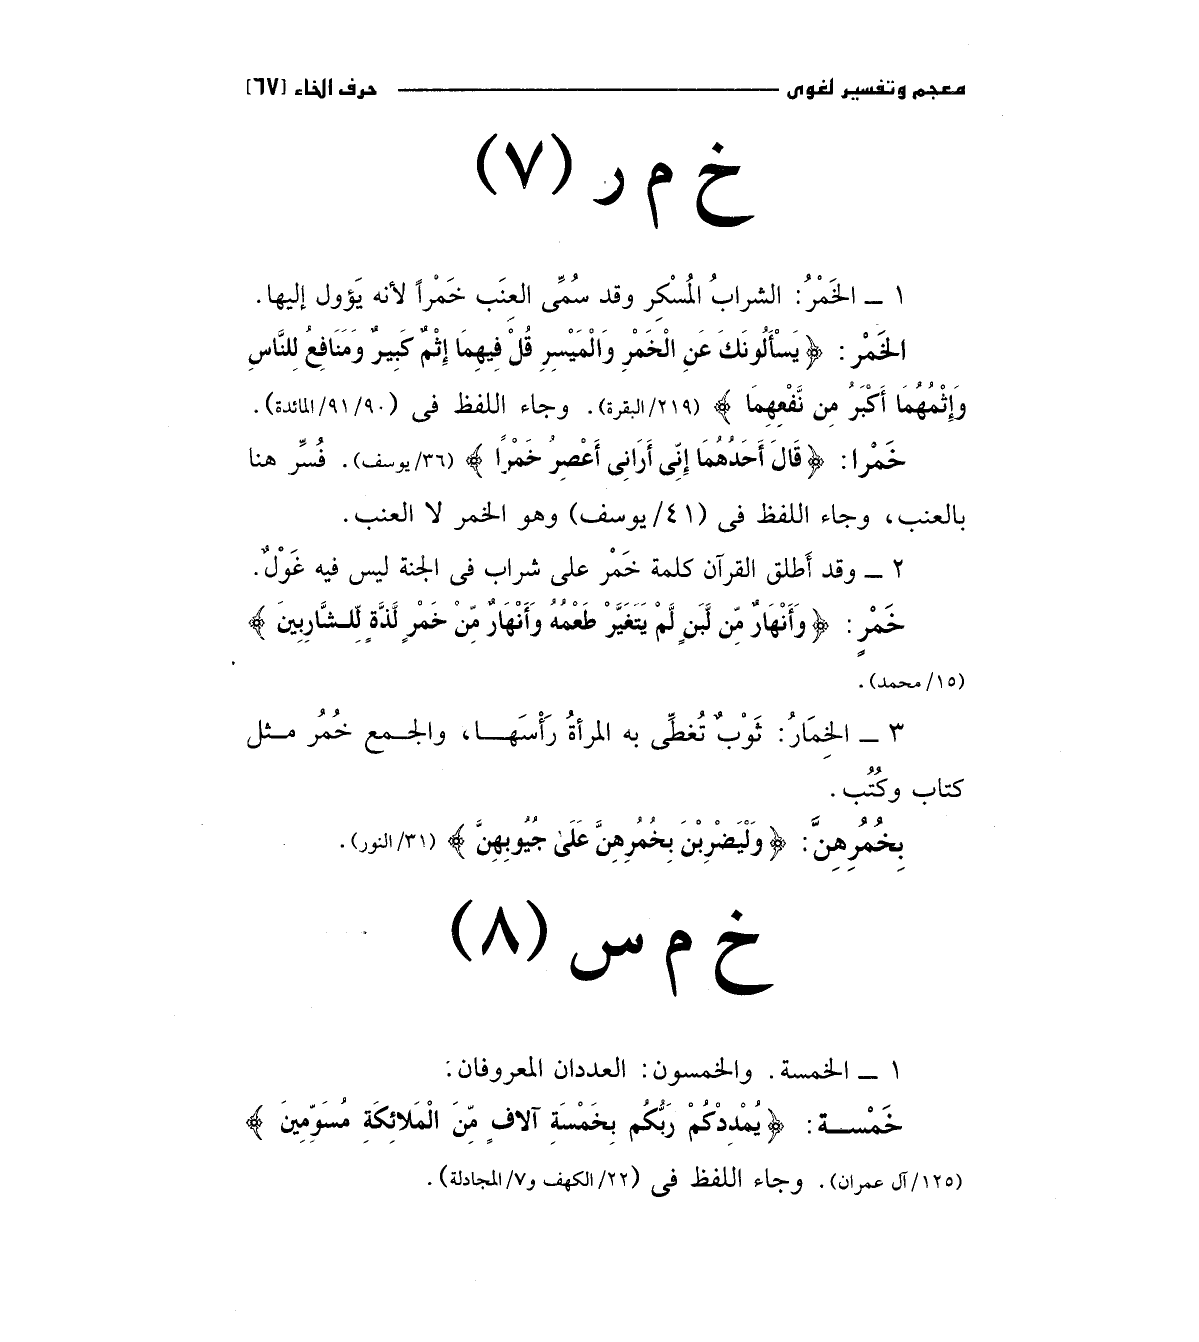 معجم وتفسير لغوى ــــــ حرف الخاء [٦٧]
خ م ر (٧)
١ ـ الخَمْرُ: الشرابُ المُسْكِر وقد سُمِّى العِنَب خَمْراً لأنه يَؤول إليها.
الخَمْرِ: ﴿ يَسْأَلُونَكَ عَنِ الْخَمْرِ وَالْمَيْسِرِ قُلْ فِيهِمَا إِثْمٌ كَبِيرٌ وَمَنَافِعُ لِلنَّاسِ
وَإِثْمُهُمَا أَكْبَرُ مِن نَّفْعِهِمَا ﴾ (٢١٩/البقرة). وجاء اللفظ فى (٩١/٩٠/المائدة).
خَمْرا: ﴿ قَالَ أَحَدُهُمَا إِنِّى أَرَانِى أَعْصِرُ خَمْرًا ﴾ (٣٦/يوسف). فُسِّر هنا
بالعنب، وجاء اللفظ فى (٤١/ يوسف) وهو الخمر لا العنب.
٢ ـ وقد أَطلق القرآن كلمة خَمْر على شراب فى الجنة ليس فيه غَوْلٌ.
خَمْرٍ: ﴿ وَأَنْهَارٌ مِّن لَّبَنٍ لَّمْ يَتَغَيَّرْ طَعْمُهُ وَأَنْهَارٌ مِّنْ خَمْرٍ لَّذَّةٍ لِّلشَّارِبِينَ ﴾
(١٥/ محمد).
٣ ـ الخِمَارُ: ثَوْبٌ تُغطِّى به المرأةُ رَأْسَهَا، والجمع خُمُر مثل
كتاب وكُتُب.
بِخُمُرِهِنَّ: ﴿ وَلْيَضْرِبْنَ بِخُمُرِهِنَّ عَلَىٰ جُيُوبِهِنَّ ﴾ (٣١/ النور).
خ م س (٨)
١ ـ الخمسة. والخمسون: العددان المعروفان:
خَمْسة: ﴿ يُمْدِدْكُمْ رَبُّكُم بِخَمْسَةِ آلافٍ مِّنَ الْمَلائِكَةِ مُسَوِّمِينَ ﴾
(١٢٥/ آل عمران). وجاء اللفظ فى (٢٢/ الكهف و٧/ المجادلة).